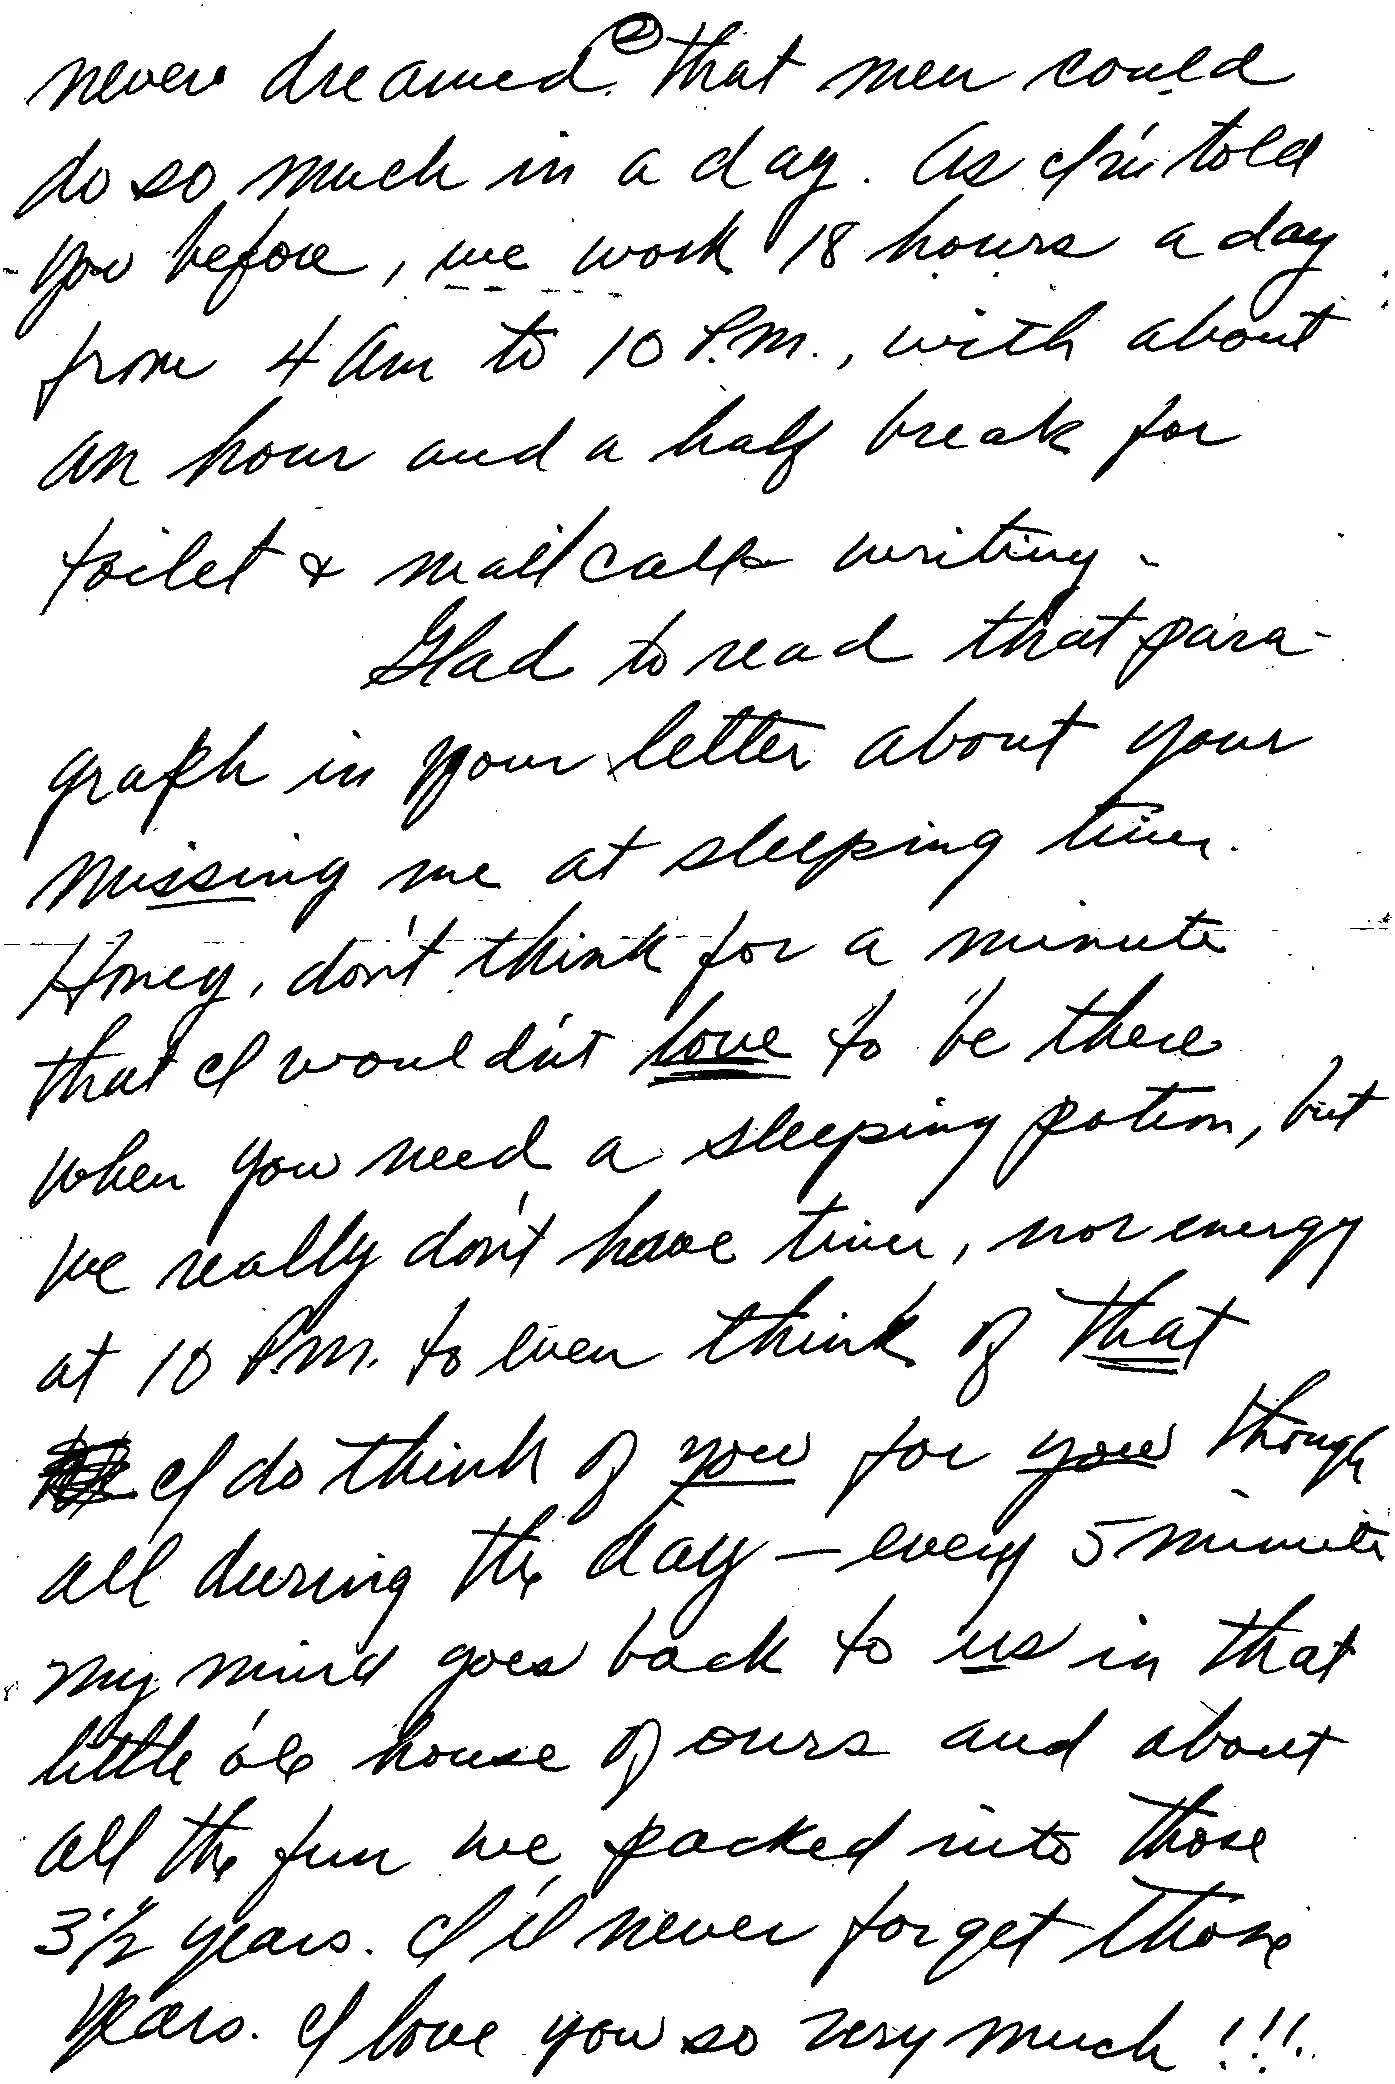 ②
never dreamed that men could
do so much in a day. As I've told
you before, we work 18 hours a day
from 4 Am to 10 P.M., with about
an hour and a half break for
toilet & mail call writing.
Glad to read that para-
graph in your letter about your
missing me at sleeping time.
Honey, don't think for a minute
that I wouldn't love to be there
when you need a sleeping potion, but
we really don't have time, nor energy
at 10 P.M. to even think of that
I do think of you for you though
all during the day — every 5 minute
my mind goes back to us in that
little ole house of ours and about
all the fun we packed into those
3 1/2 years. I'll never forget those
years. I love you so very much !!!